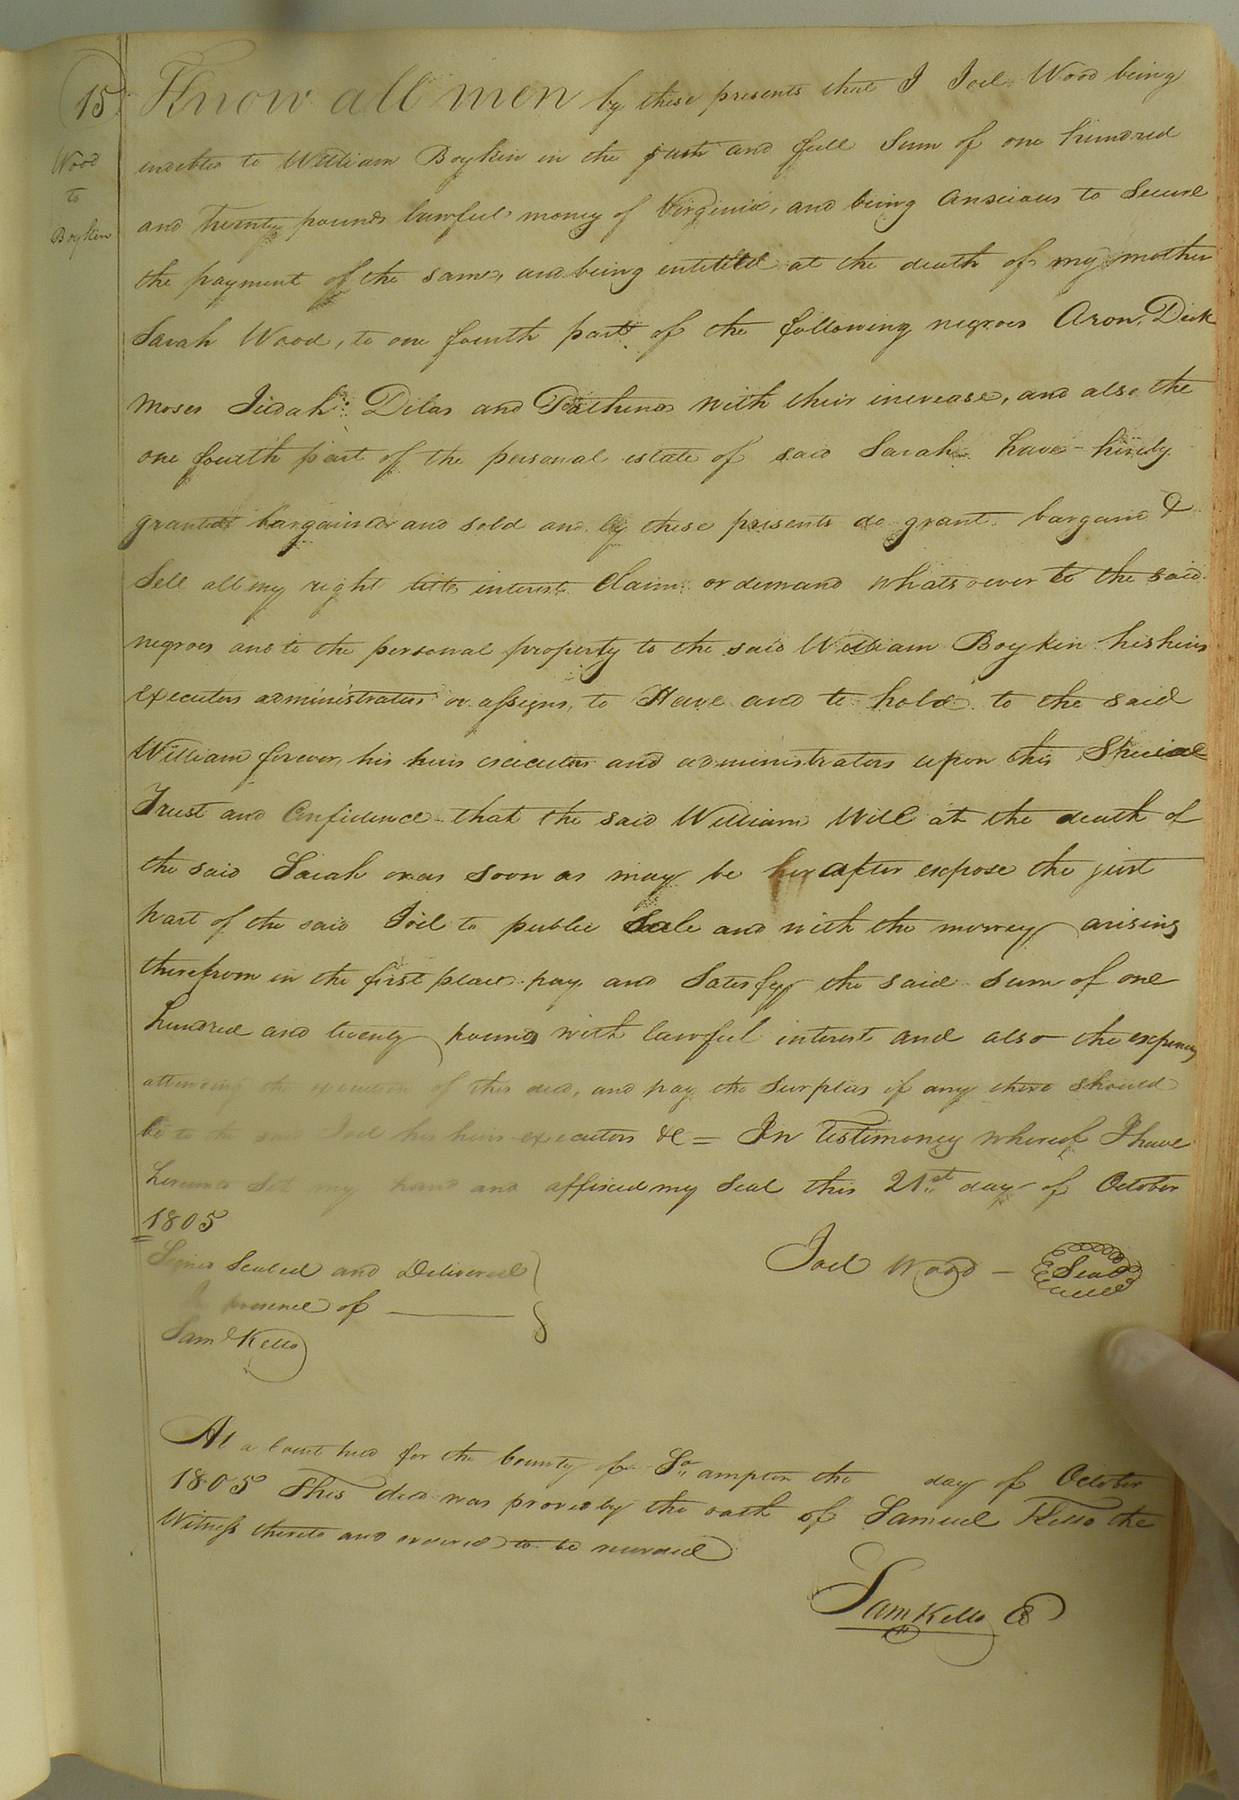 15
Wood
to
Boykin
Know all men by these presents that I Joel Wood being
indebted to William Boykin in the just and full Sum of one hundred
and Twenty pounds lawful money of Virginia, and being anscious to Secure
the payment of the same, and being entitled at the death of my mother
Sarah Wood, to one fourth part of the following negroes Aron, Dick
Moses Judah Dilas and with their increase, and also the
one fourth part of the personal estate of said Sarah have hereby
granted bargained and sold and by these presents do grant bargain &
Sell all my right title interest Claim or demand whatsoever to the said
negroes and to the personal property to the said William Boykin his heirs
Executors administrators or assigns, to Have and to hold to the said
William forever, his heirs executors and administrators upon this Special
Trust and Confidence that the said William Will at the death of
the said Sarah or as soon as may be her after expose the just
part of the said Joel to public Sale and with the money arising
therefrom in the first place pay and Satisfy the said sum of one
hundred and twenty pounds with lawful interest and also the expences
attending the execution of this deed, and pay the Surplus if any there should
be to the said Joel his heirs executors &C = In Testimony whereof I have
hereunto Set my hand and affixed my Seal this 21st day of October
1805
Signed Sealed and Delivered
In presence of
Saml Kello
Joel Wood - Seal
At a Court held for the County of So,,ampton the day of October
1805 This deed was proved by the oath of Samuel Kello the
Witness thereto and ordered to be recorded
Sam Kello